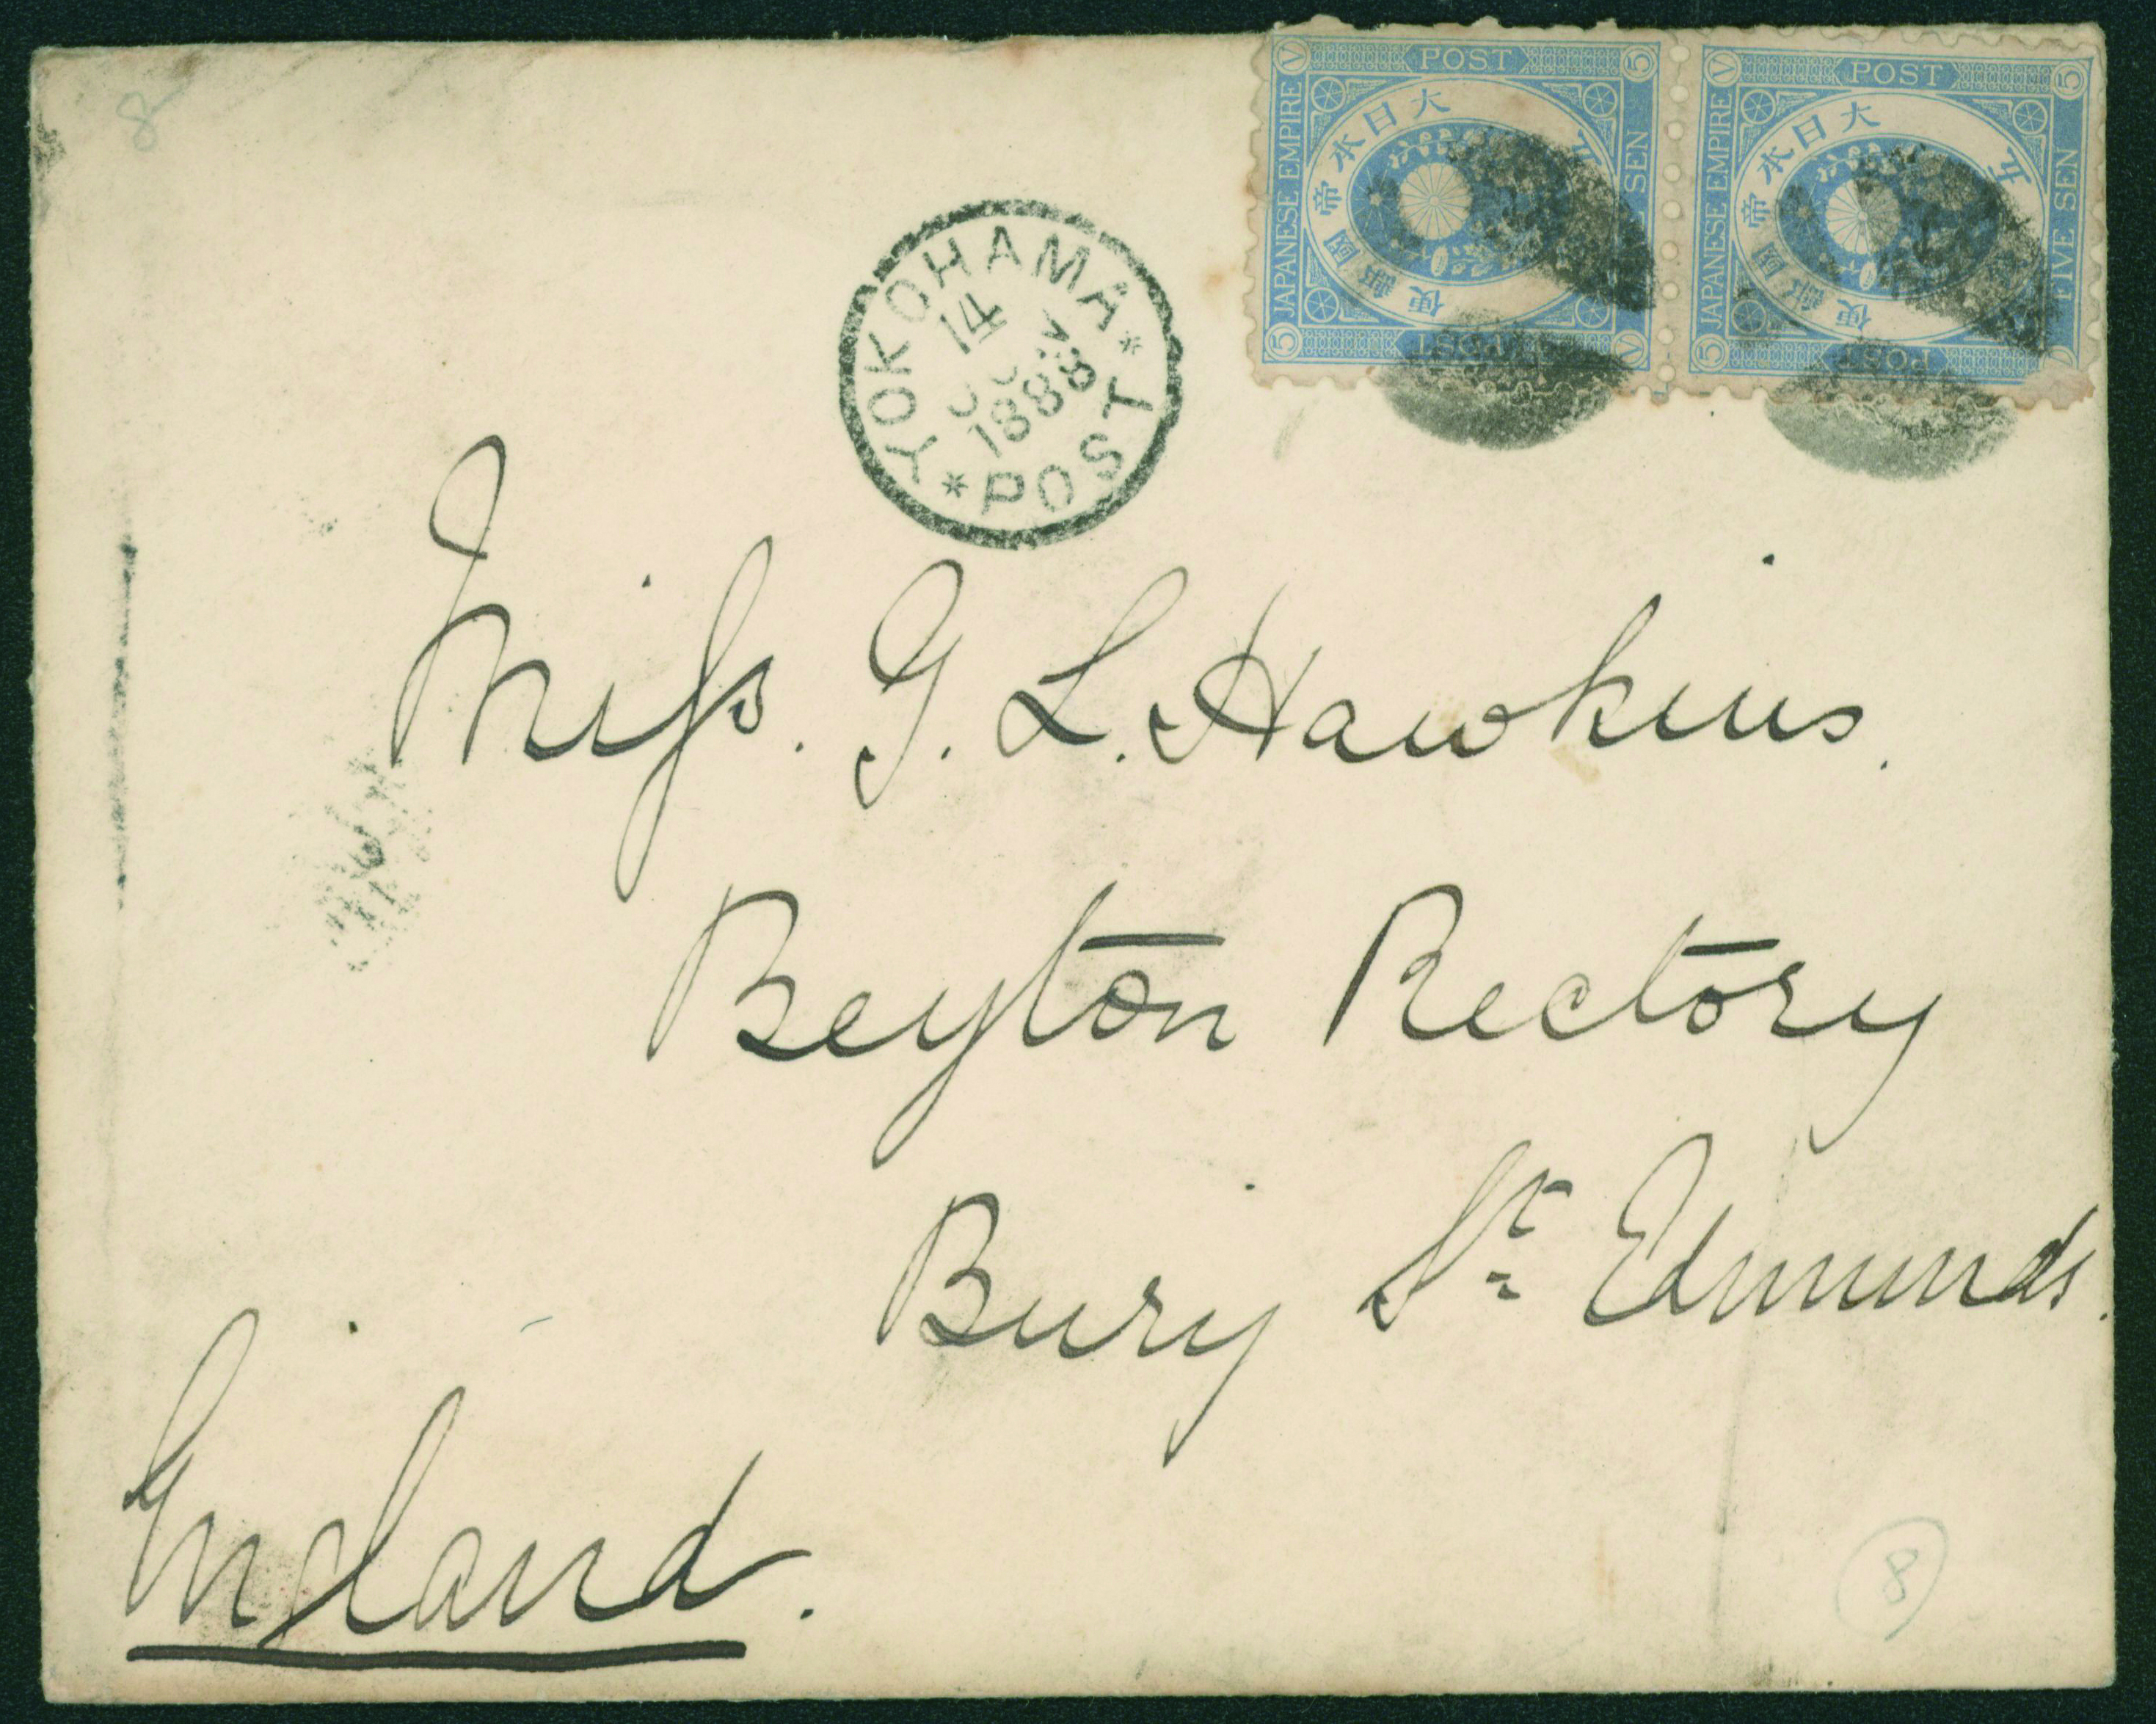 8
V POST 5
JAPANESE EMPIRE
大日本帝國郵便
五
SEN
5 POST V
V POST 5
JAPANESE EMPIRE
大日本帝國郵便
五
FIVE SEN
5 POST
YOKOHAMA
14
1888
* POST *
Miss. G. L. Hawkins.
Beyton Rectory
Bury St Edmunds.
England.
8